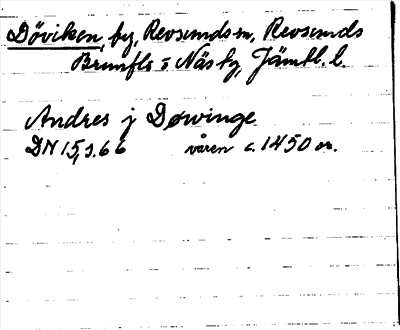 Döviken, by, Revsunds sn, Revsunds
Brunflo o Näs tg, Jämtl. l.
Andres j Døwinge
DN 15, s. 66 våren c. 1450 or.